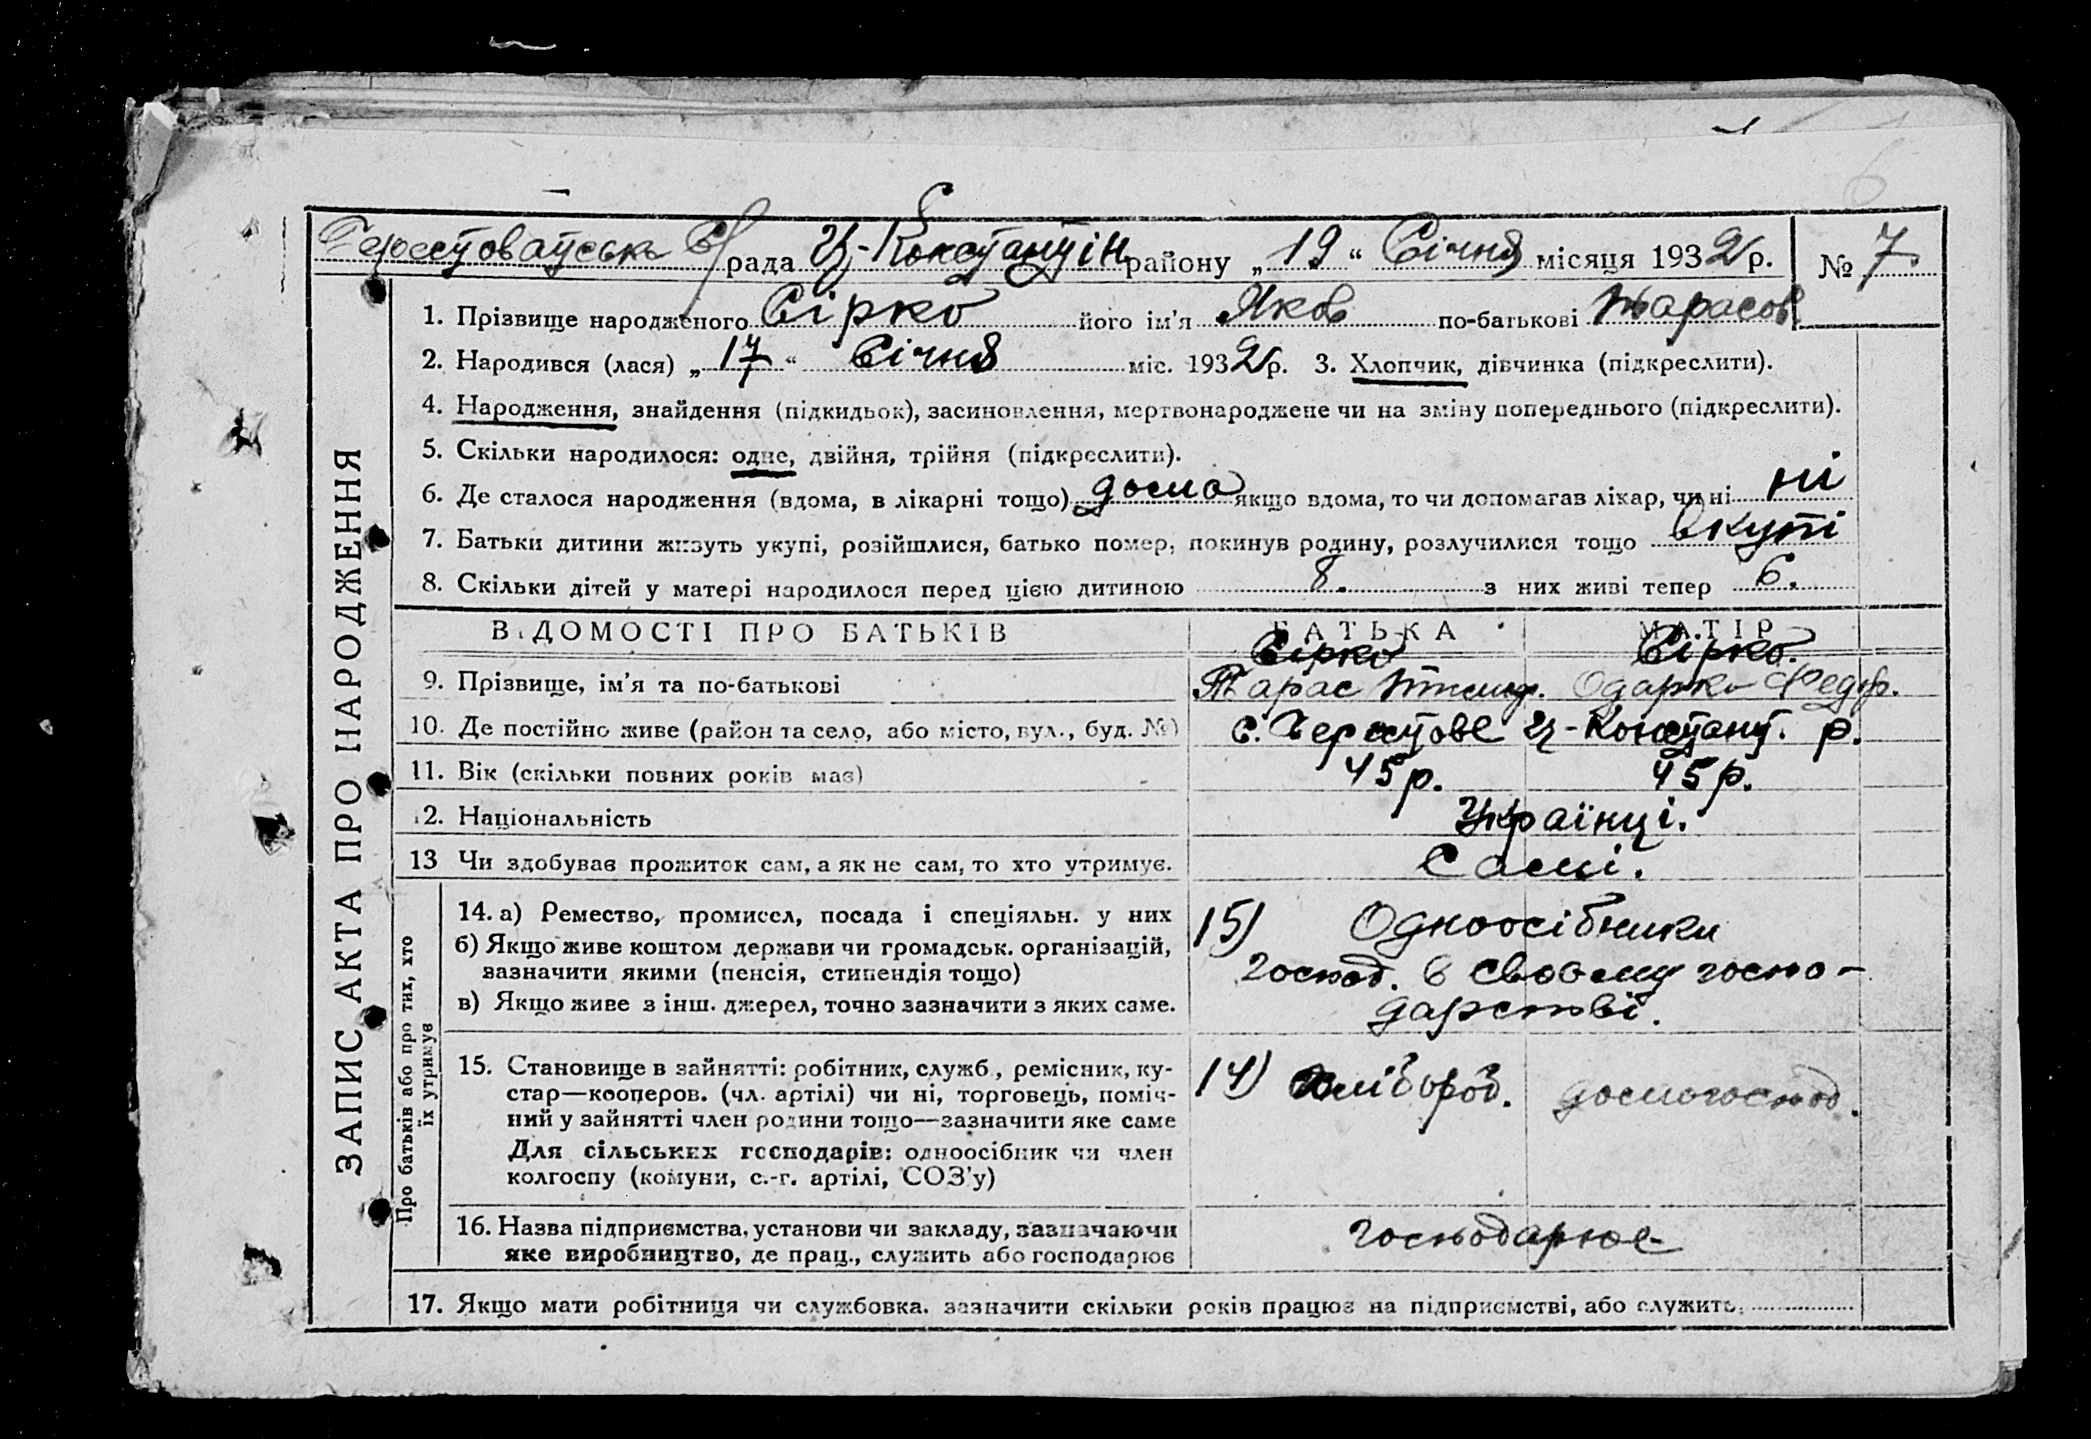 Берестоватська С/рада Ц-Констянтін району „19“ Січня місяця 1932 р. № 7.
1. Прізвище народженого Сірко його ім'я Яков по-батькові Тарасов.
2. Народився (лася) „17“ Січня міс. 1932 р. 3. Хлопчик, дівчинка (підкреслити).
4. Народження, знайдення (підкидьок), засиновлення, мертвонароджене чи на зміну попереднього (підкреслити).
5. Скільки народилося: одне, двійня, трійня (підкреслити).
6. Де сталося народження (вдома, в лікарні тощо) дома якщо вдома, то чи допомагав лікар, чи ні ні
7. Батьки дитини живуть укупі, розійшлися, батько помер, покинув родину, розлучилися тощо вкупі
8. Скільки дітей у матері народилося перед цією дитиною 8. з них живі тепер 6.
ВІДОМОСТІ ПРО БАТЬКІВ БАТЬКА МАТІР
Сірко Сірко.
9. Прізвище, ім'я та по-батькові Тарас Одарка Федор.
10. Де постійно живе (район та село, або місто, вул., буд. №) с. Берестове Ц-Констянт. р.
11. Вік (скільки повних років має) 45 р. 45 р.
12. Національність Українці.
13 Чи здобуває прожиток сам, а як не сам, то хто утримує. Самі.
14. а) Ремество, промисел, посада і спеціяльн. у них 15) Одноосібники
б) Якщо живе коштом держави чи громадськ. організацій,
зазначити якими (пенсія, стипендія тощо) господ. в своому госпо-
в) Якщо живе з інш. джерел, точно зазначити з яких саме. дарстві.
15. Становище в зайнятті: робітник, служб., ремісник, ку-
стар—кооперов. (чл. артілі) чи ні, торговець, поміч- 14) хлібороб. домогоспод.
ний у зайнятті член родини тощо—зазначити яке саме
Для сільських господарів: одноосібник чи член
колгоспу (комуни, с.-г. артілі, СОЗ'у)
16. Назва підприємства, установи чи закладу, зазначаючи господарює
яке виробництво, де прац., служить або господарює
17. Якщо мати робітниця чи службовка, зазначити скільки років працює на підприємстві, або служить.
ЗАПИС АКТА ПРО НАРОДЖЕННЯ
Про батьків або про тих, хто
їх утримує
6